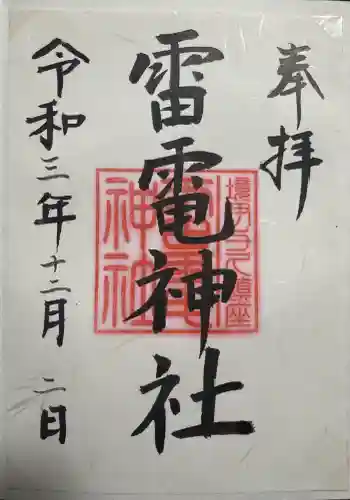 奉拝
雷電神社
令和三年十二月二日
雷電
神社